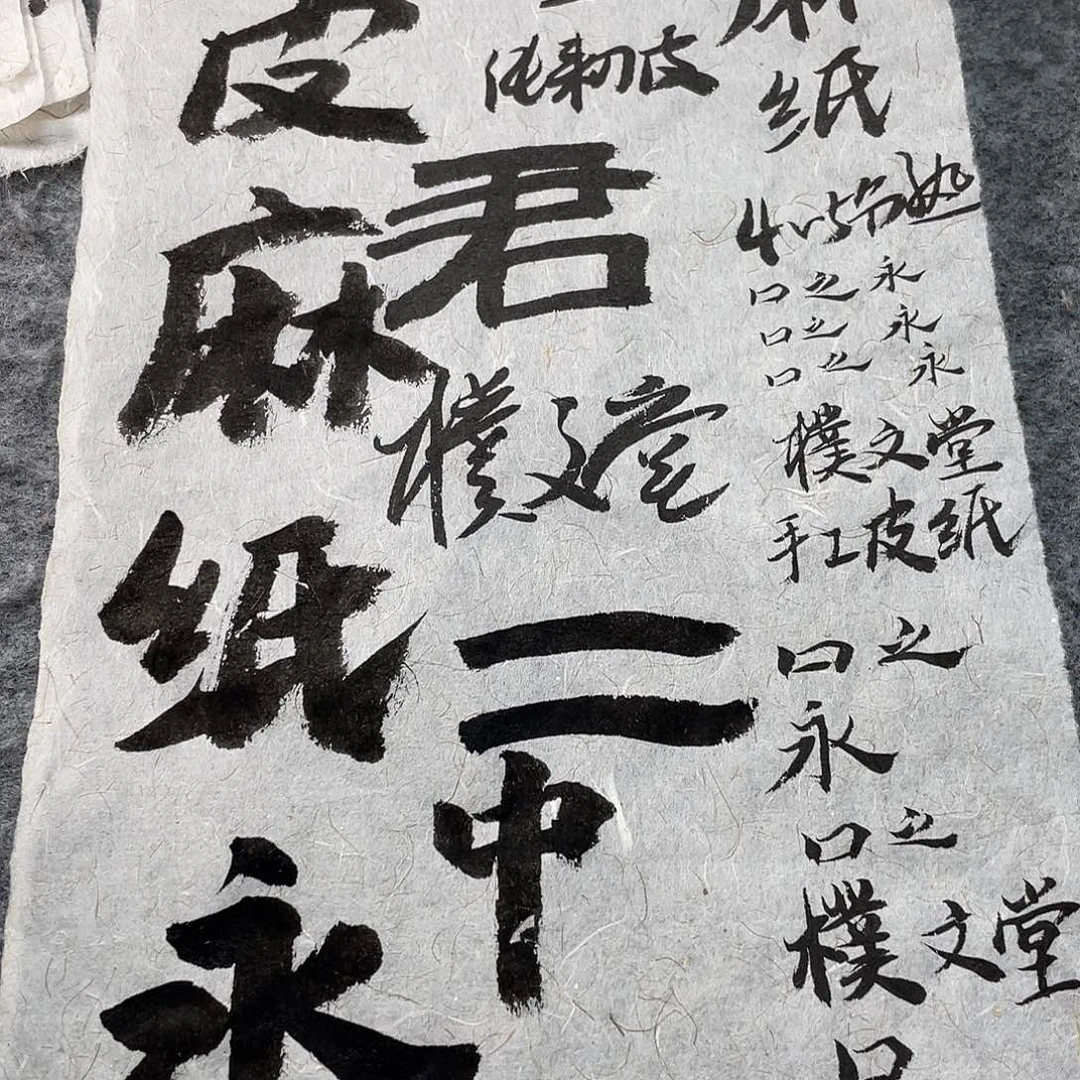 皮
麻
纸
永
皮
君
樸文堂
二
中
麻
纸
口之永
口之永
口之永
樸文堂
手工皮纸
口之
永
口之
樸文堂
口